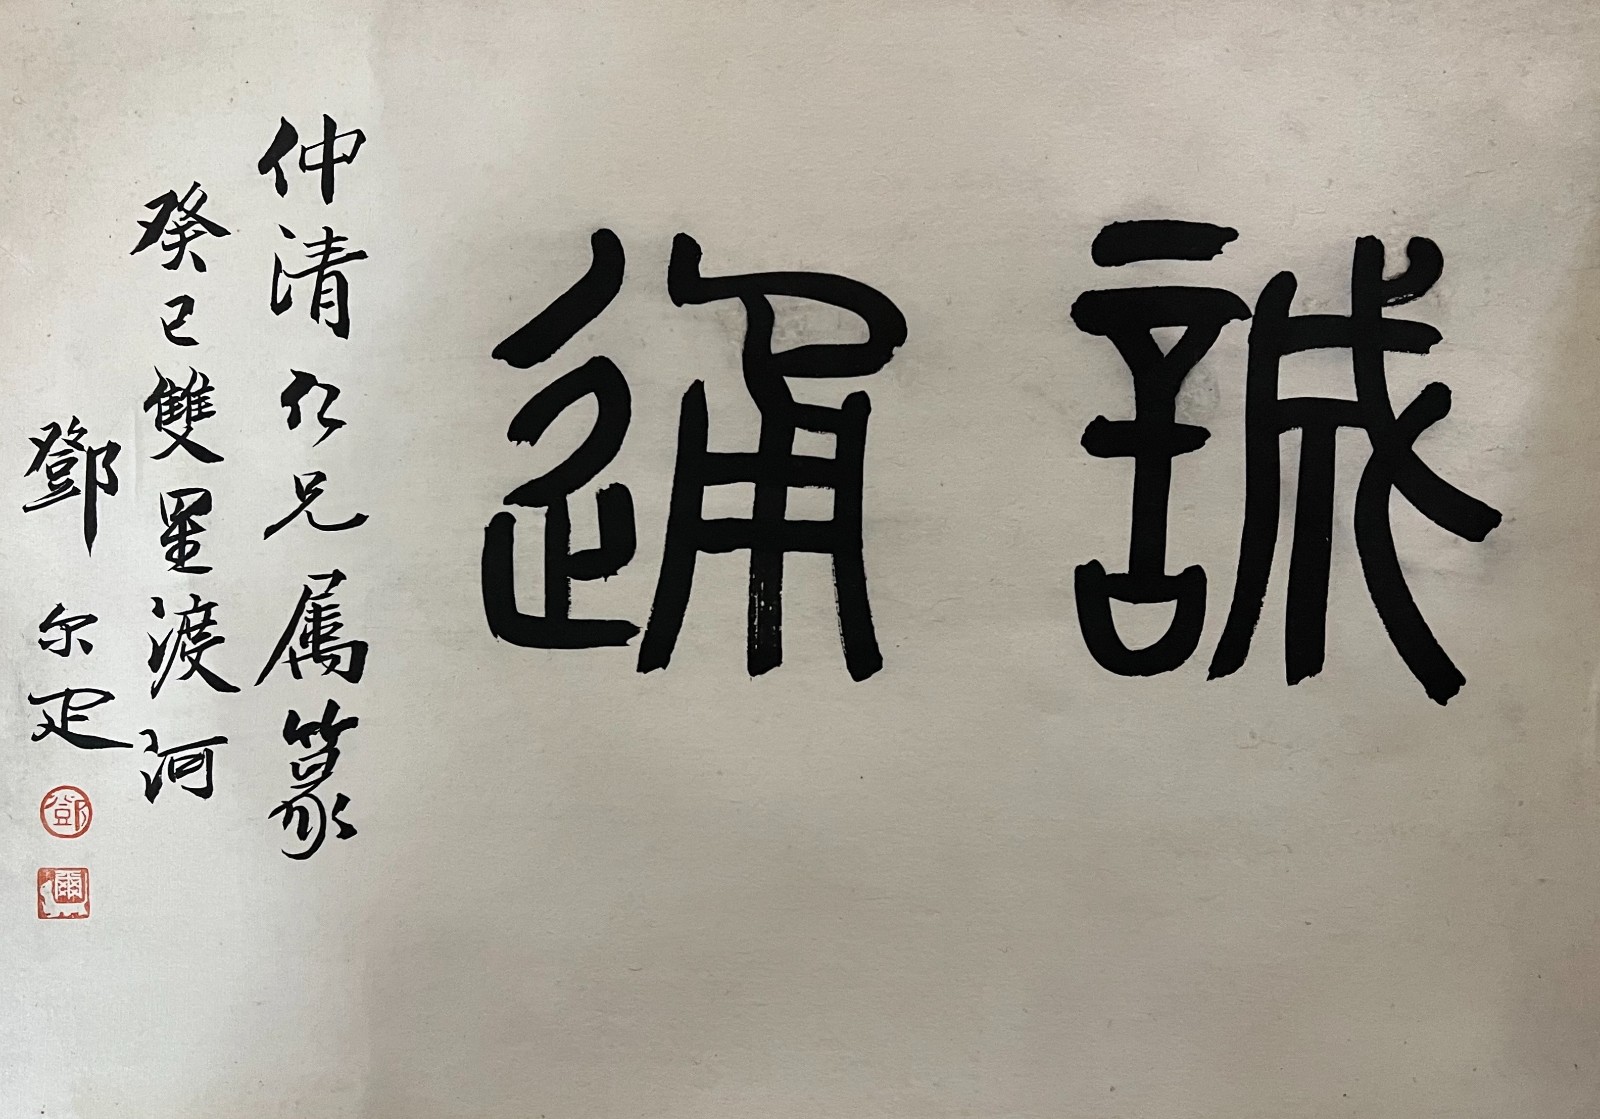 誠通
仲清仁兄属篆
癸巳雙星渡河
鄧尔疋
鄧
爾